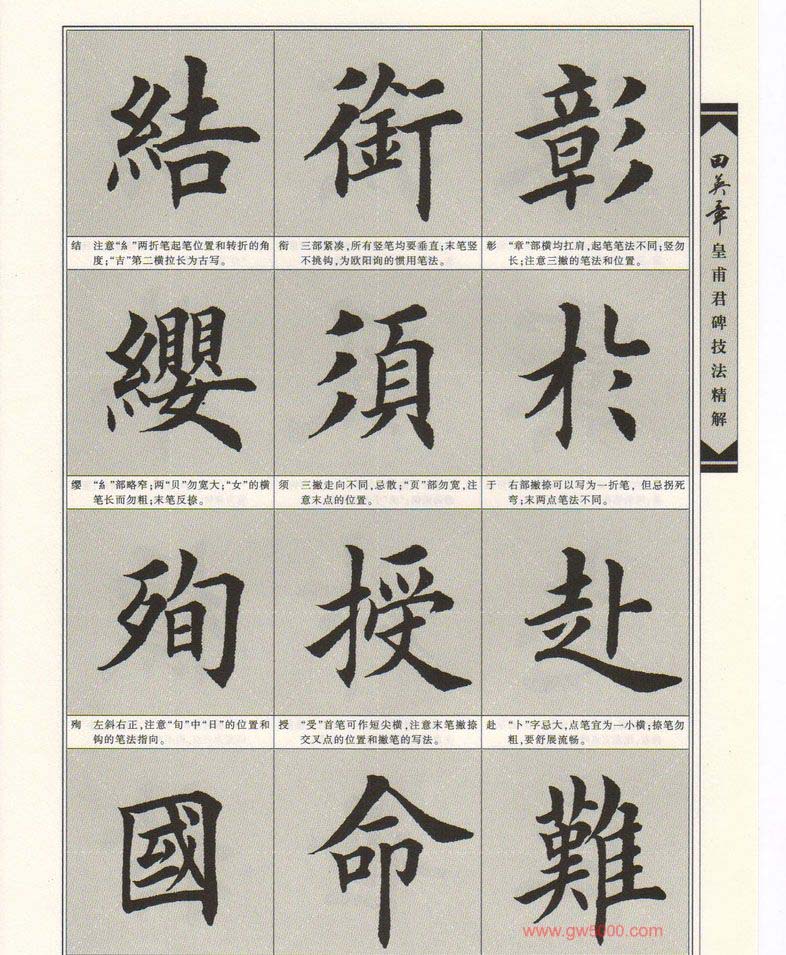 彰
彰 “章”部横均扛肩,起笔笔法不同;竖勿
长;注意三撇的笔法和位置。
銜
衔 三部紧凑,所有竖笔均要垂直;末笔竖
不挑钩,为欧阳询的惯用笔法。
結
结 注意“糹”两折笔起笔位置和转折的角
度;“吉”第二横拉长为古写。
於
于 右部撇捺可以写为一折笔,但忌拐死
弯;末两点笔法不同。
須
须 三撇走向不同,忌散;“页”部勿宽,注
意末点的位置。
纓
缨 “糹”部略窄;两“贝”勿宽大;“女”的横
笔长而勿粗;末笔反捺。
赴
赴 “卜”字忌大,点笔宜为一小横;捺笔勿
粗,要舒展流畅。
授
授 “受”首笔可作短尖横,注意末笔撇捺
交叉点的位置和撇笔的写法。
殉
殉 左斜右正,注意“旬”中“日”的位置和
钩的笔法指向。
難
命
國
田英章皇甫君碑技法精解
www.gw5000.com